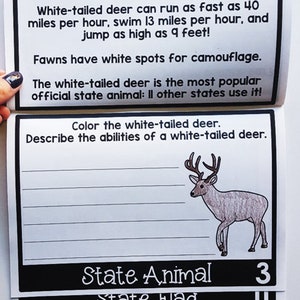 White-tailed deer can run as fast as 40
miles per hour, swim 13 miles per hour, and
jump as high as 9 feet!
Fawns have white spots for camouflage.
The white-tailed deer is the most popular
official state animal: 11 other states use it!
Color the white-tailed deer.
Describe the abilities of a white-tailed deer.
State Animal 3
State Flag